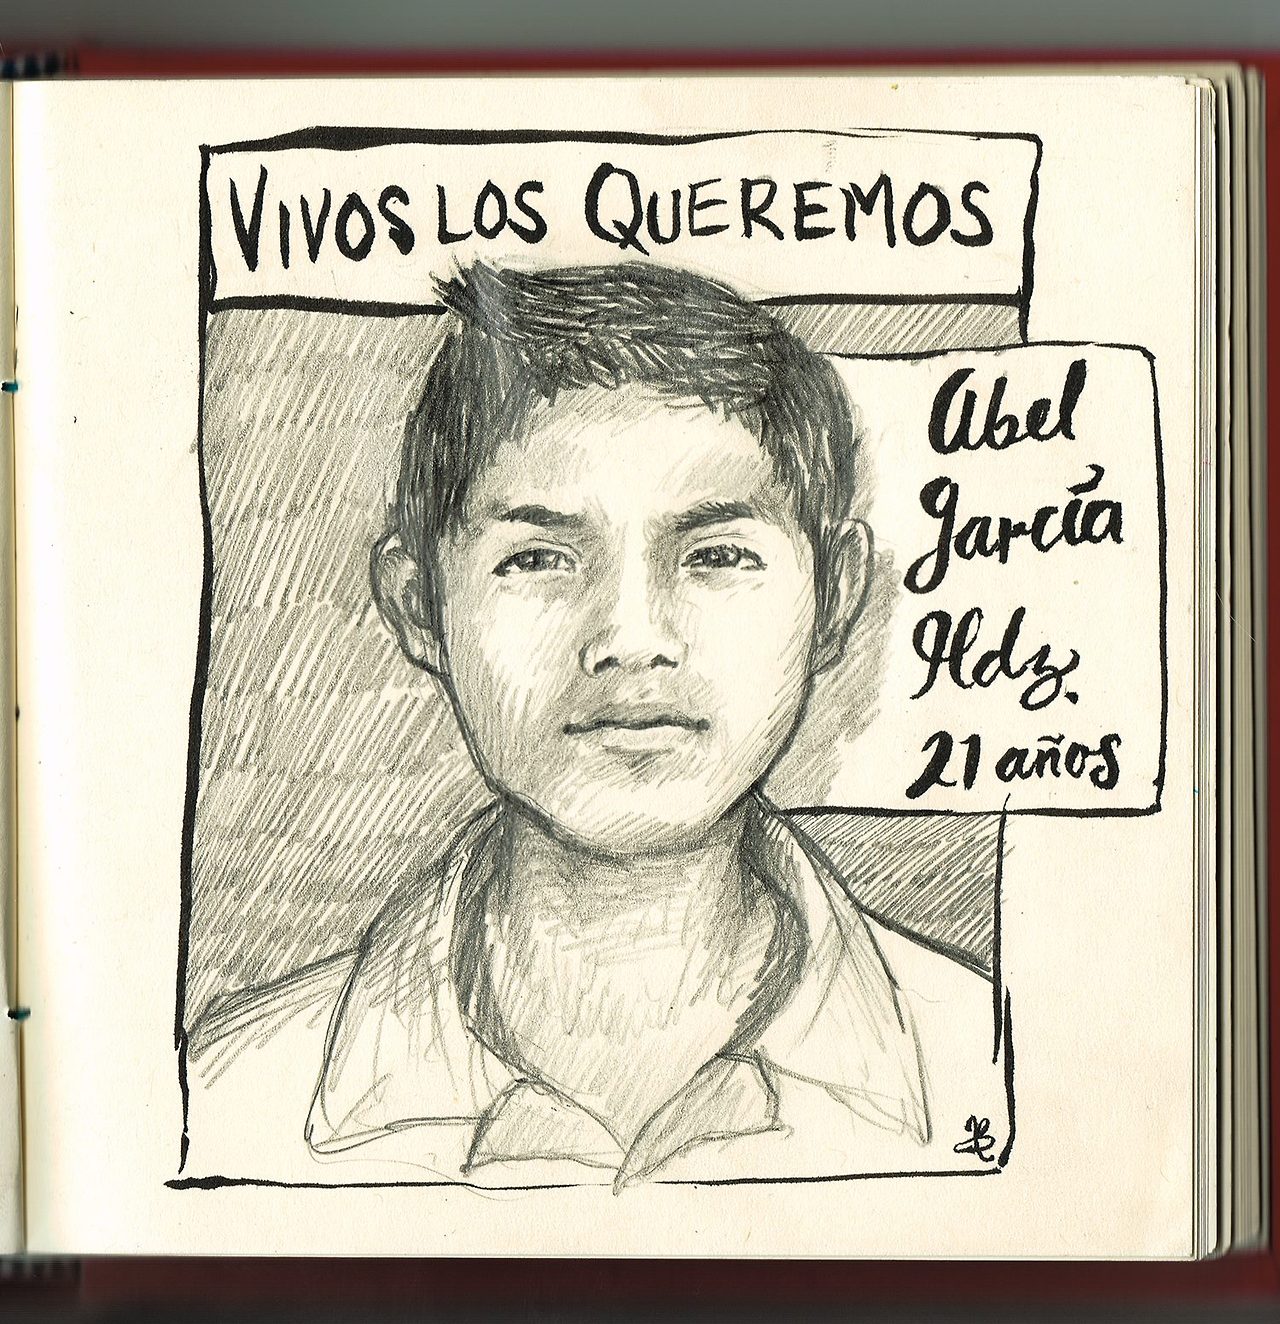 VIVOS LOS QUEREMOS
Abel
García
Hdz.
21 años